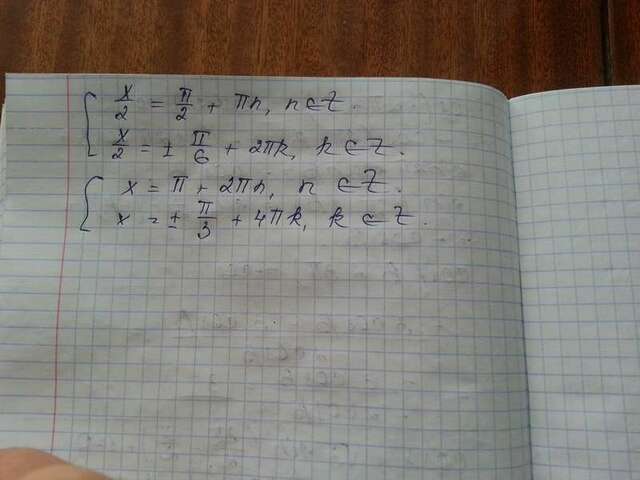 x/2 = π/2 + πn, n ∈ Z.
x/2 = ± π/6 + 2πk, k ∈ Z.
x = π + 2πn, n ∈ Z.
x = ± π/3 + 4πk, k ∈ Z.